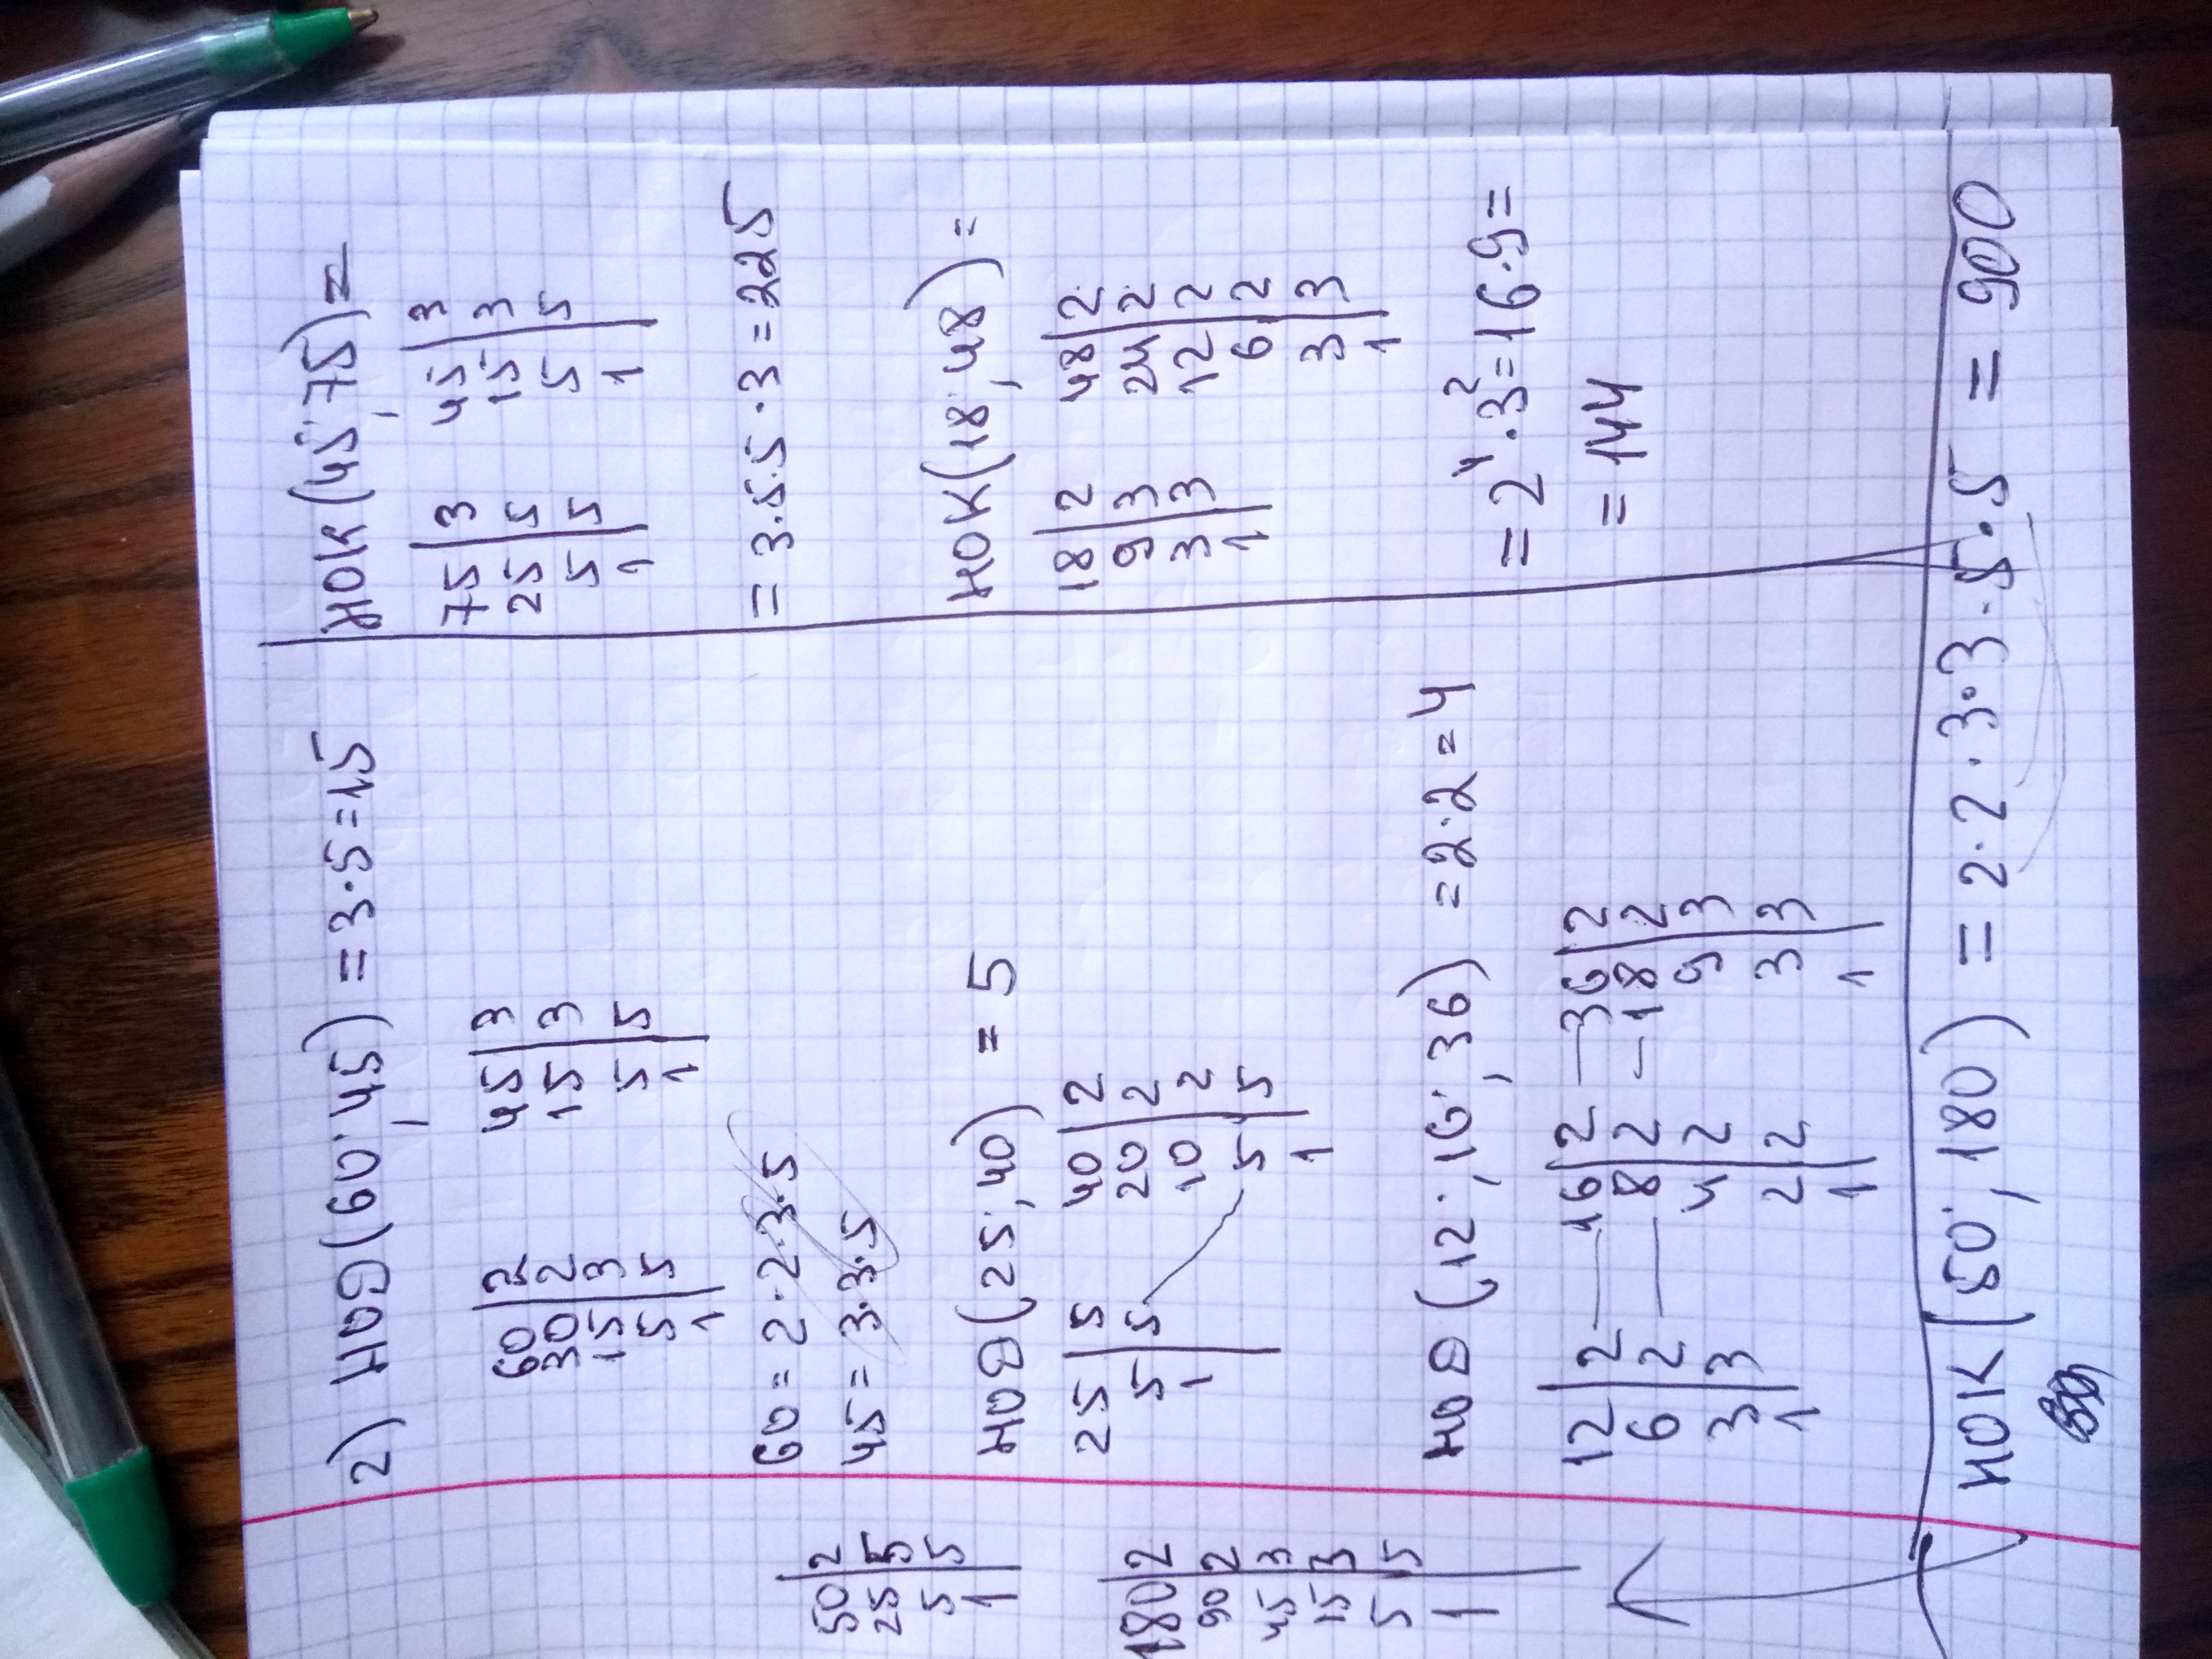 2) НОД(60; 45) = 3·5=15
60|2 45|3
30|2 15|3
15|3 5|5
5|5 1
1
60=2·2·3·5
45=3·3·5
НОД(25; 40) = 5
25|5 40|2
5|5 20|2
1 10|2
5|5
1
НОД(12; 16; 36) =2·2=4
12|2 16|2 36|2
6|2 8|2 18|2
3|3 4|2 9|3
1 2|2 3|3
1 1
НОК(45; 75)=
75|3 45|3
25|5 15|3
5|5 5|5
1 1
=3·5·5·3=225
НОК(18; 48)=
18|2 48|2
9|3 24|2
3|3 12|2
1 6|2
3|3
1
=2⁴·3²=16·9=
=144
НОК(50; 180) = 2·2·3·3·5·5 = 900
50|2
25|5
5|5
1
180|2
90|2
45|3
15|3
5|5
1